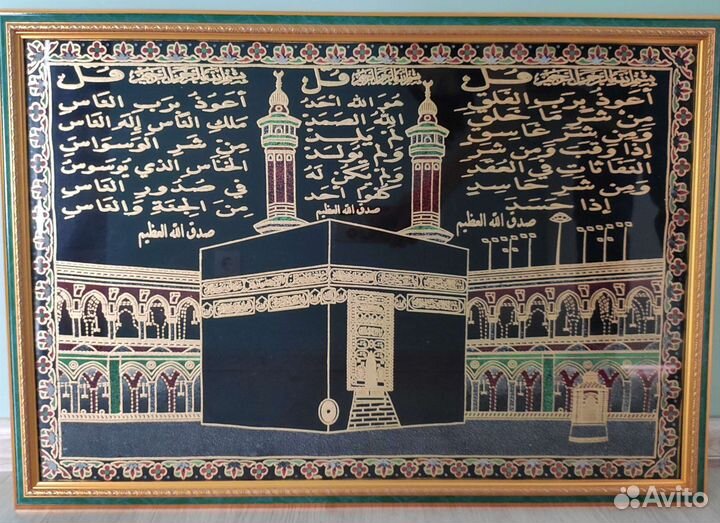 بسم الله الرحمن الرحيم قل
أعوذ برب الفلق
من شر ما خلق
ومن شر غاسق
إذا وقب ومن شر
النفاثات في العقد
ومن شر حاسد
إذا حسد
صدق الله العظيم
بسم الله الرحمن الرحيم قل
هو الله احد
الله الصمد
لم يلد
ولم يولد
ولم يكن له
كفوا أحد
صدق الله العظيم
بسم الله الرحمن الرحيم قل
أعوذ برب الناس
ملك الناس إله الناس
من شر الوسواس
الخناس الذي يوسوس
في صدور الناس
من الجنة والناس
صدق الله العظيم
Avito